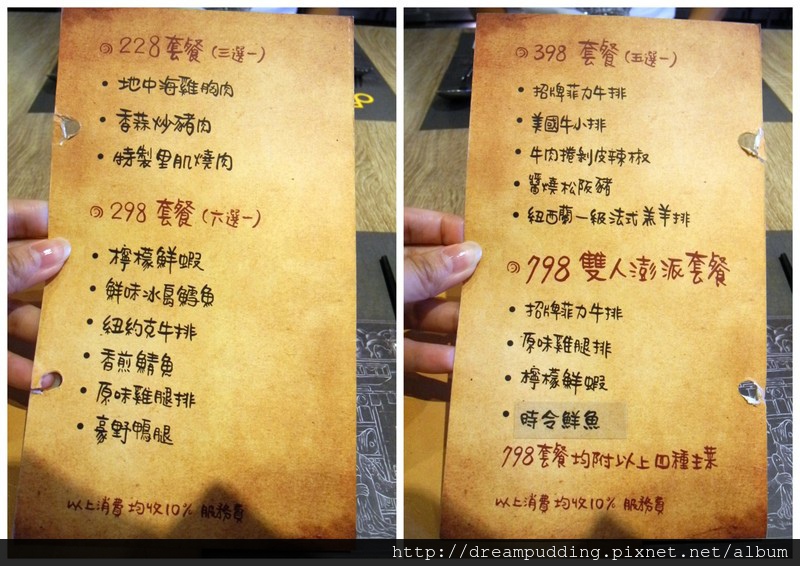 228 套餐 (三選一)
• 地中海雞胸肉
• 香蒜炒豬肉
• 特製里肌燒肉
298 套餐 (六選一)
• 檸檬鮮蝦
• 鮮味冰島鱈魚
• 紐約克牛排
• 香煎鯖魚
• 原味雞腿排
• 豪野鴨腿
以上消費均收10% 服務費
398 套餐 (五選一)
• 招牌菲力牛排
• 美國牛小排
• 牛肉捲剝皮辣椒
• 醬燒松阪豬
• 紐西蘭一級法式羔羊排
798 雙人澎派套餐
• 招牌菲力牛排
• 原味雞腿排
• 檸檬鮮蝦
• 時令鮮魚
798套餐均附以上四種主菜
以上消費均收10% 服務費
http://dreampudding.pixnet.net/album